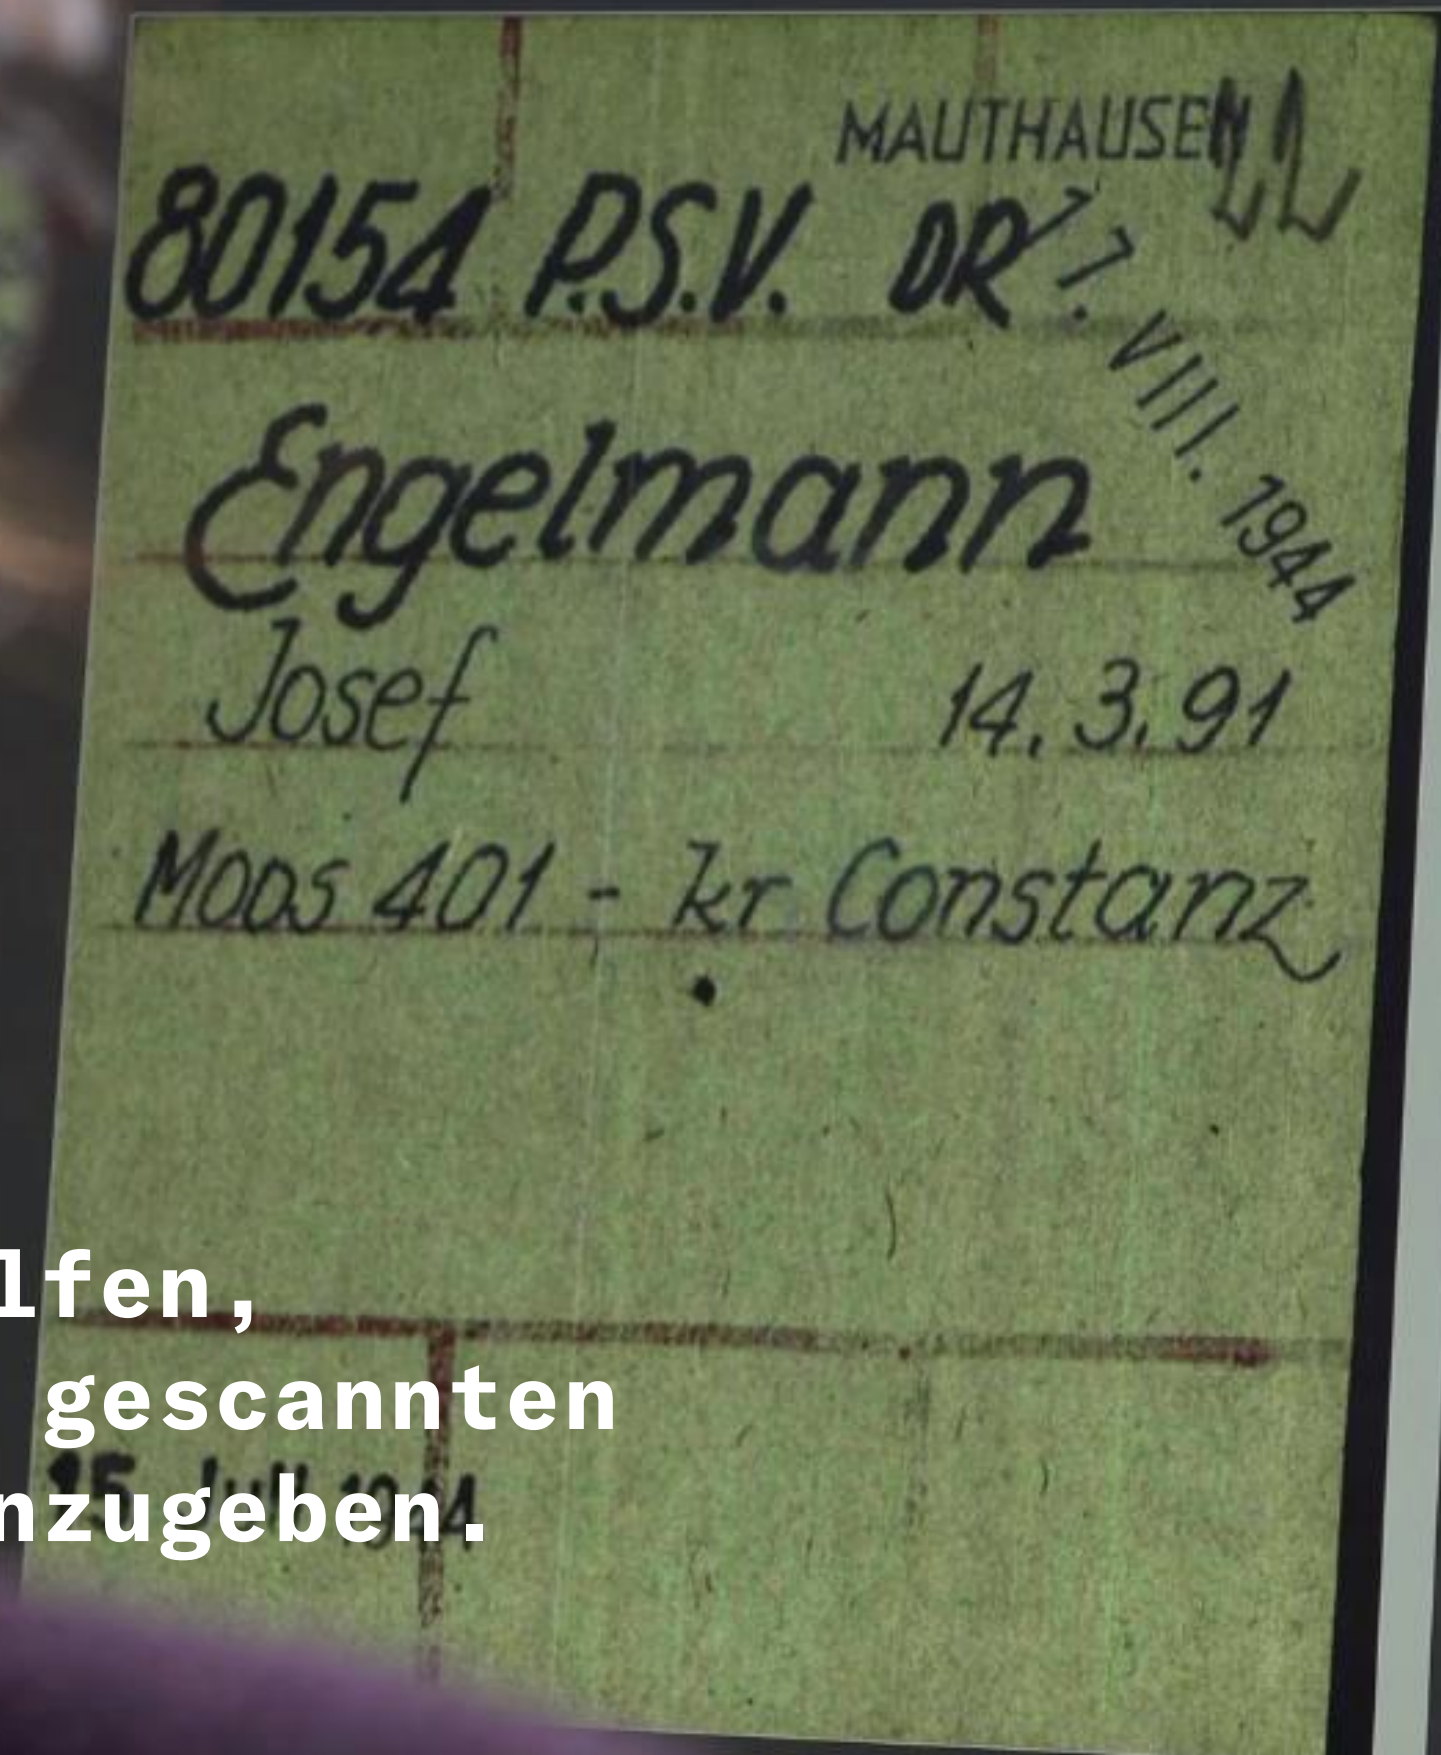 MAUTHAUSEN
80154 P.S.V. DR
VIII. 1944
Engelmann
Josef 14.3.91
Moos 401 - kr Constanz
lfen,
gescannten
nzugeben.
Juli 1944